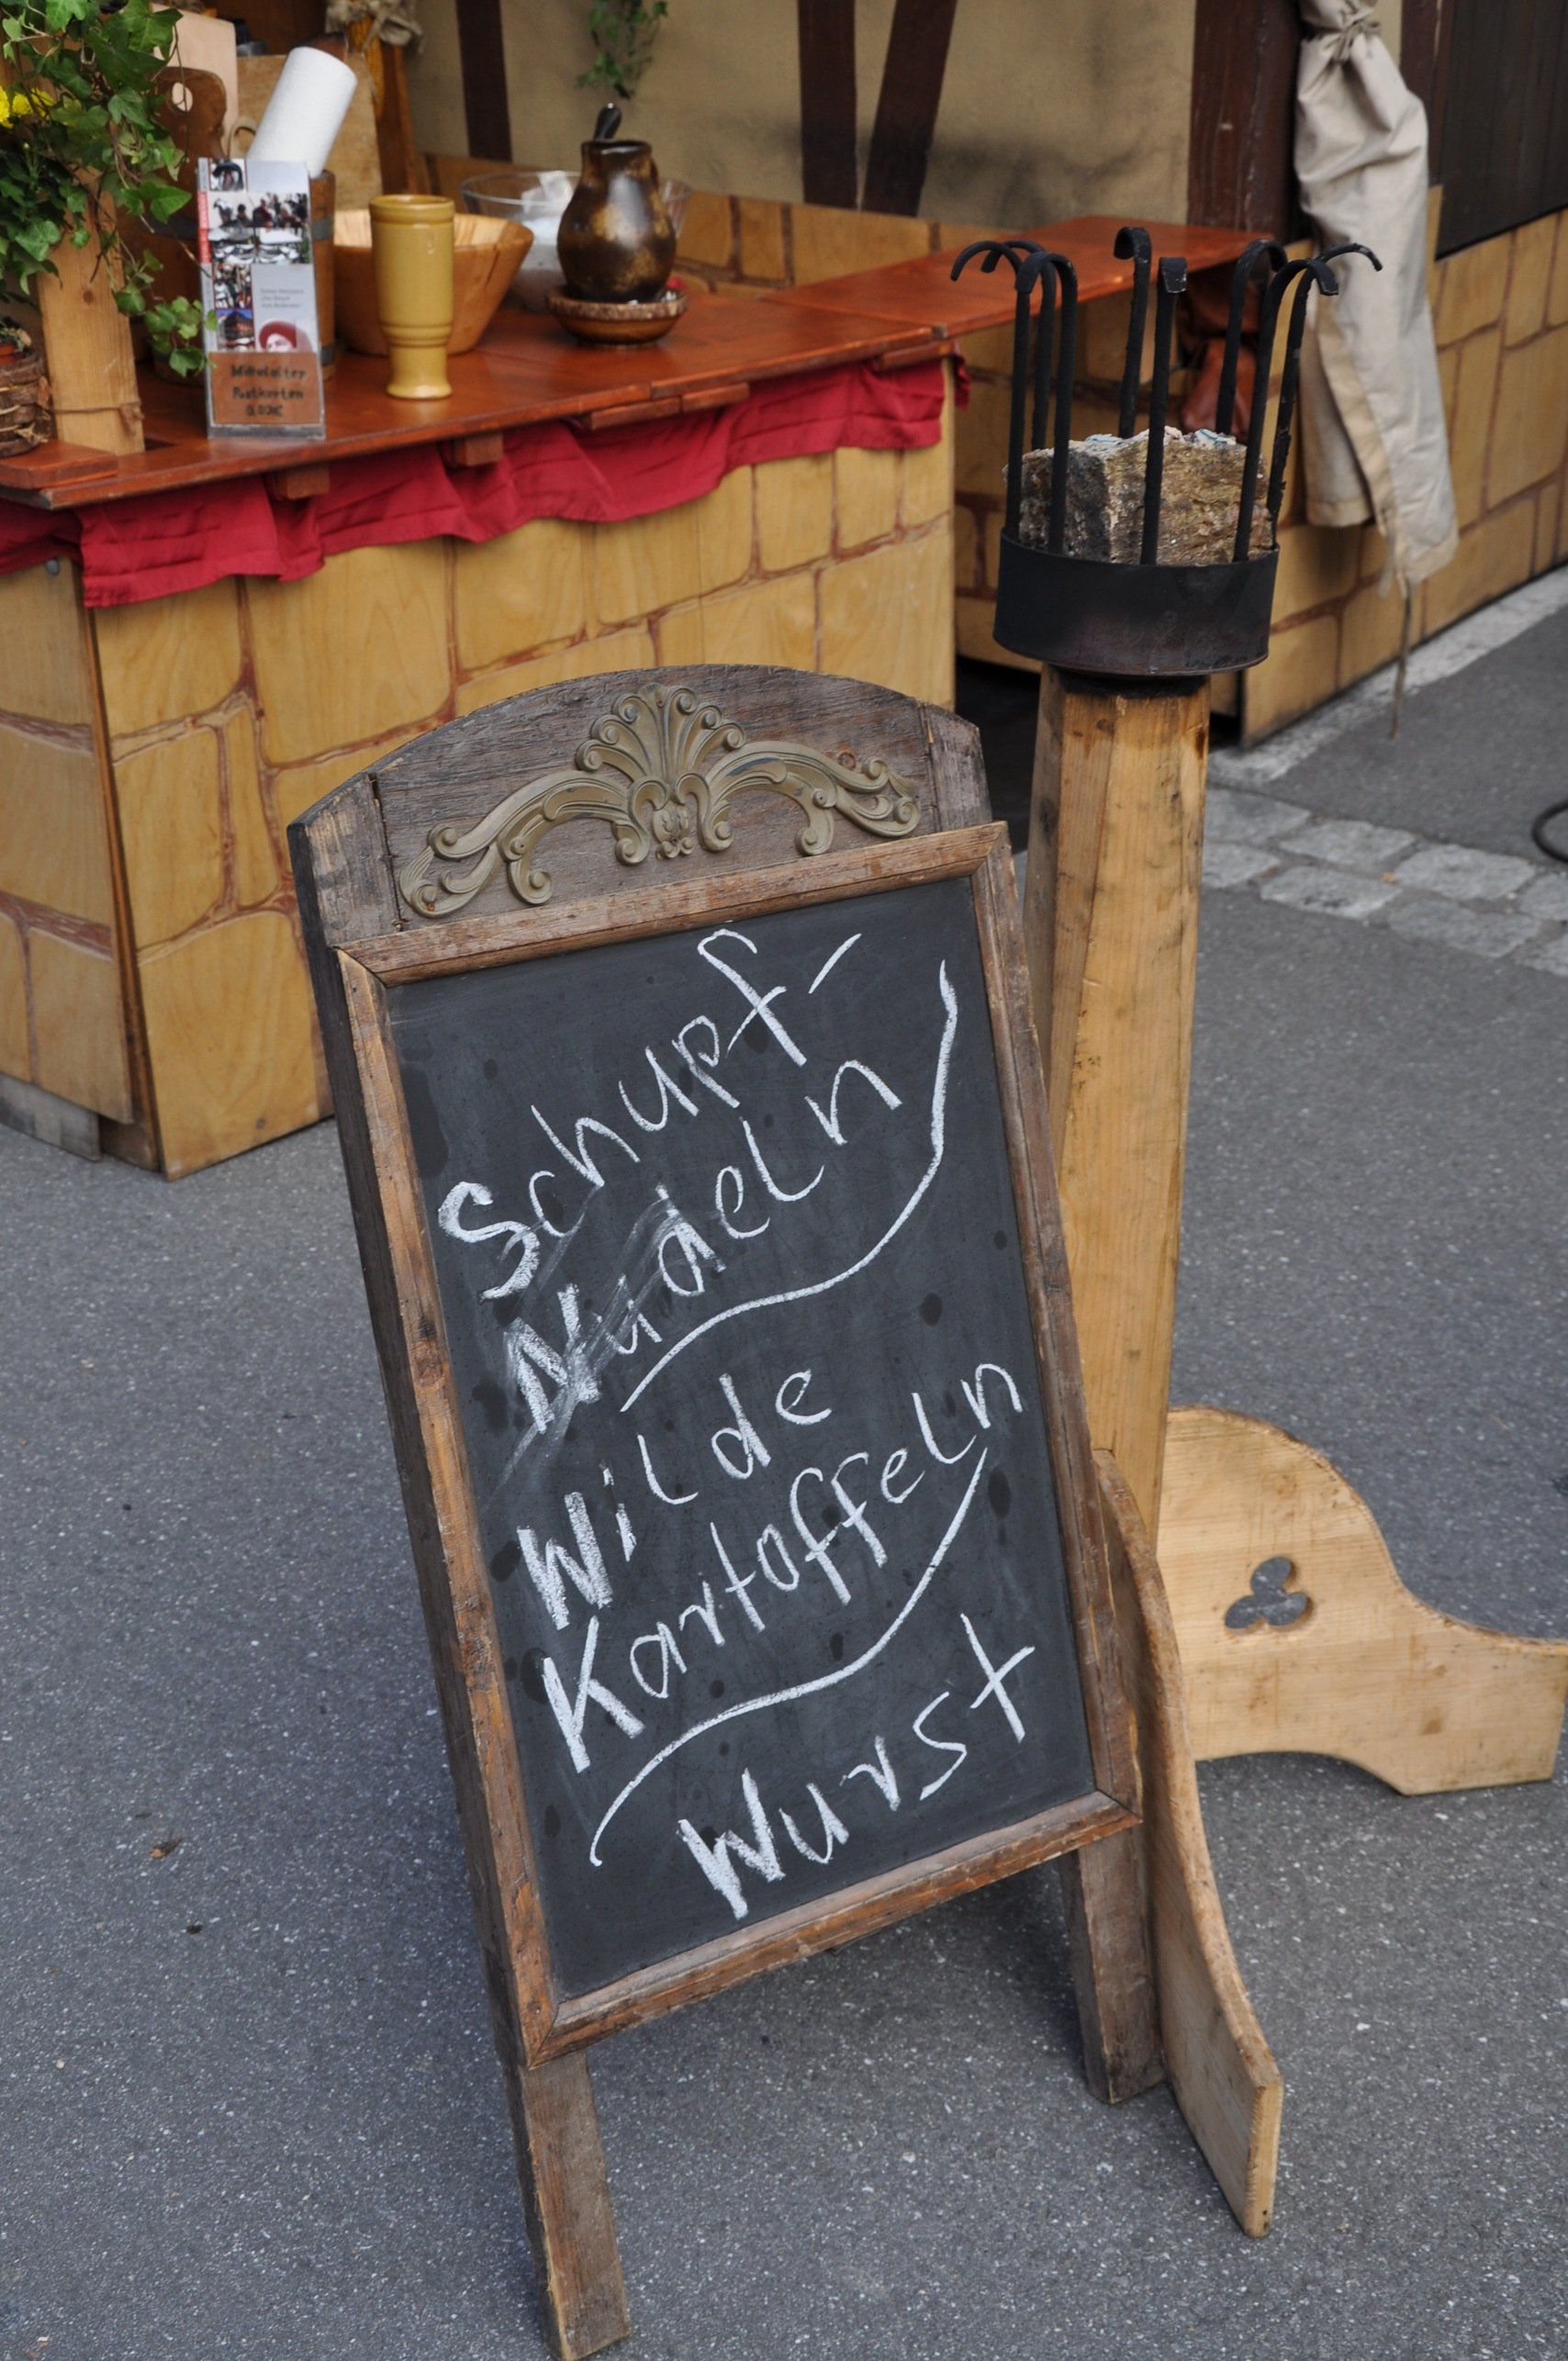 Mittelalter
Postkarten
Schupf-
Nudeln
Wilde
Kartoffeln
Wurst